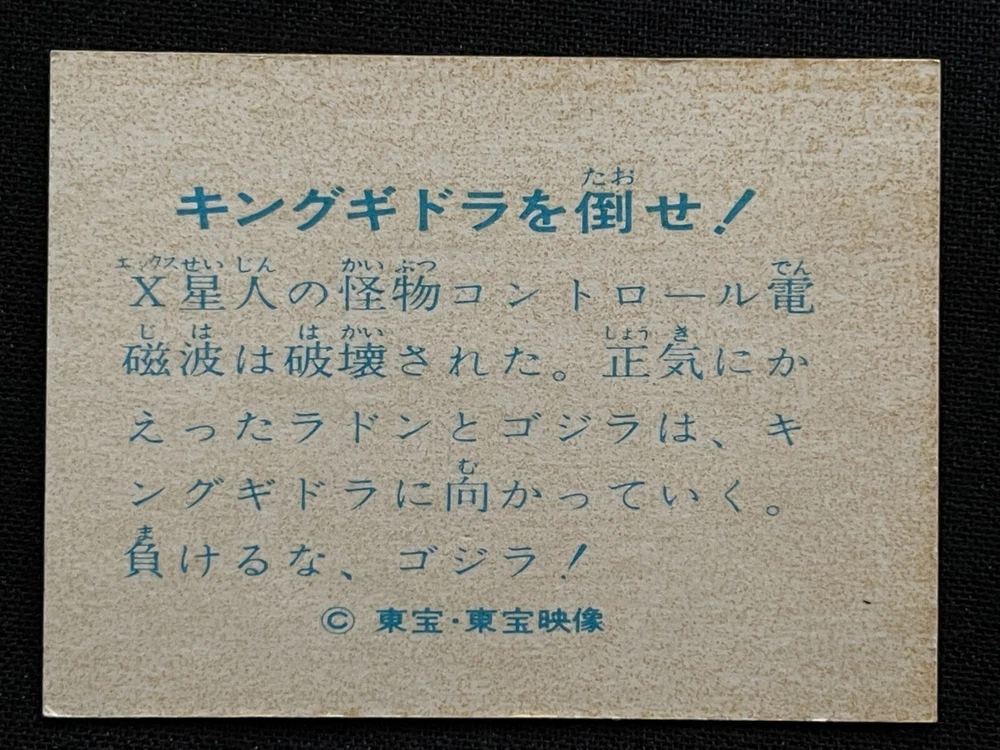 キングギドラを倒せ！
X星人の怪物コントロール電
磁波は破壊された。正気にか
えったラドンとゴジラは、キ
ングギドラに向かっていく。
負けるな、ゴジラ！
© 東宝・東宝映像